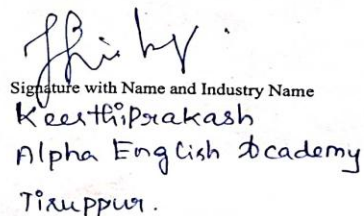 Signature with Name and Industry Name
KeerthiPrakash
Alpha English Academy
Tiruppur.